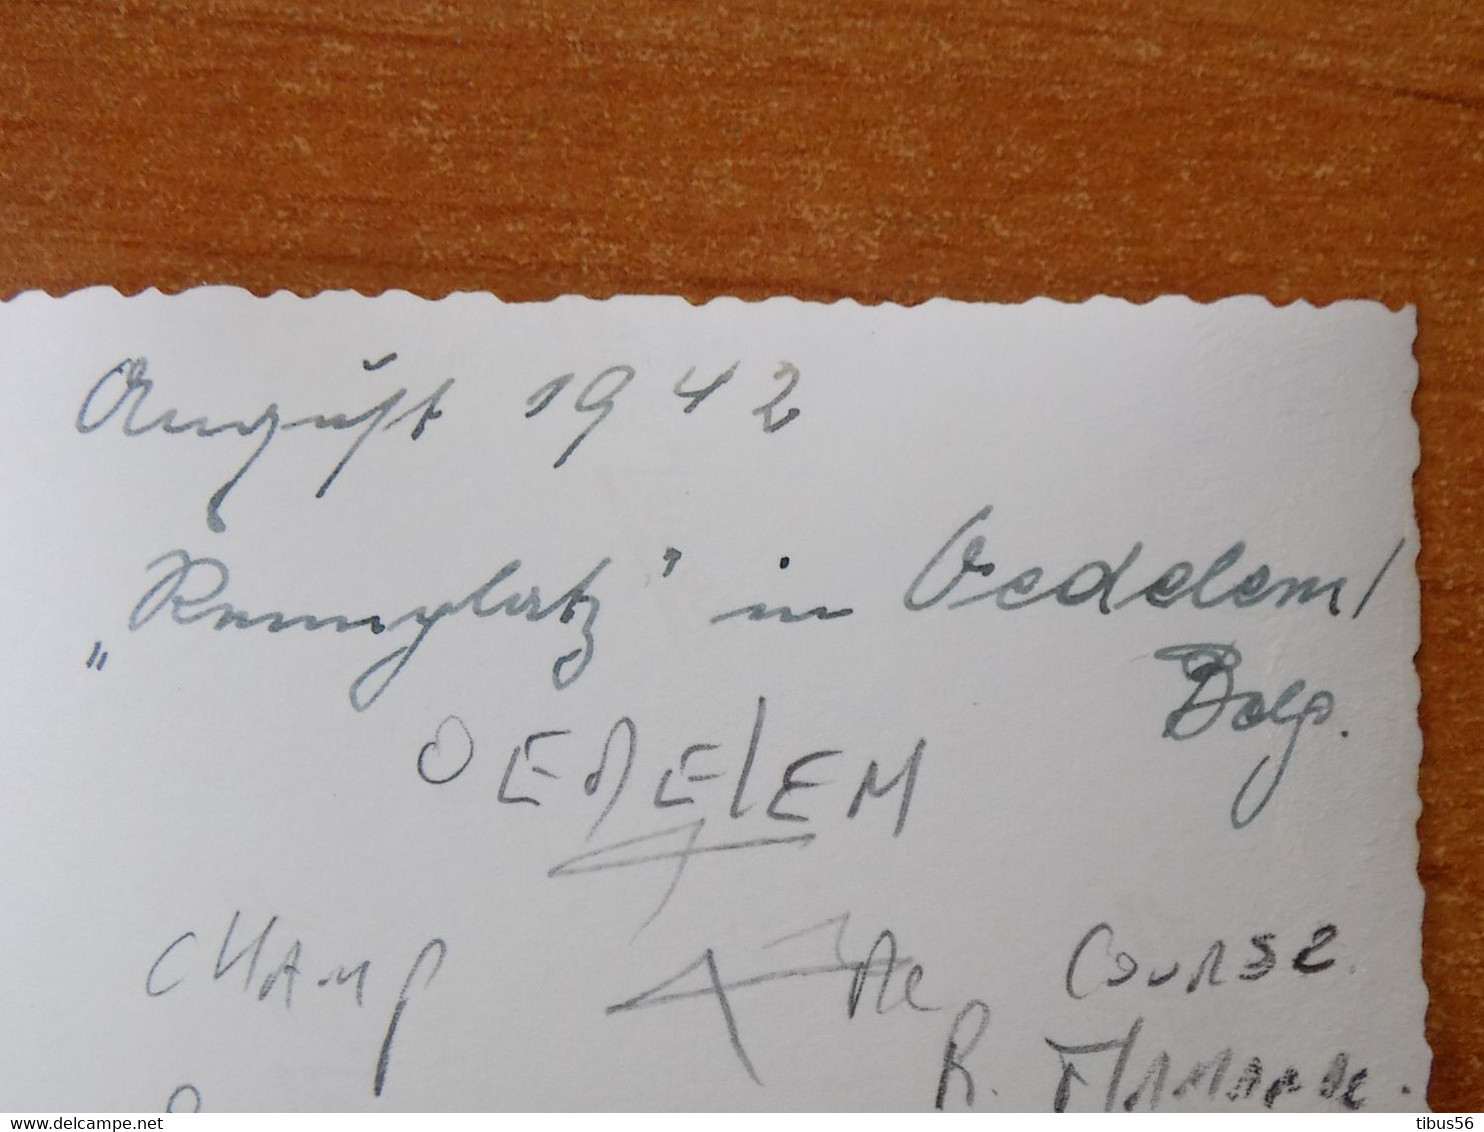 August 1942
„Rennplatz" in Oedelem/
Belg.
OEDELEM
CHAMP de COURSE
R.
delcampe.net
tibus56